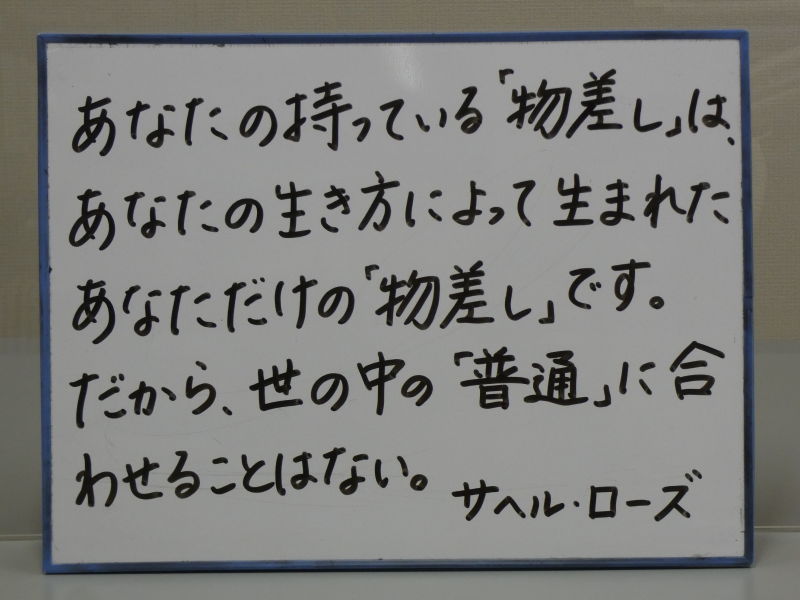 あなたの持っている「物差し」は、
あなたの生き方によって生まれた
あなただけの「物差し」です。
だから、世の中の「普通」に合
わせることはない。
サヘル・ローズ